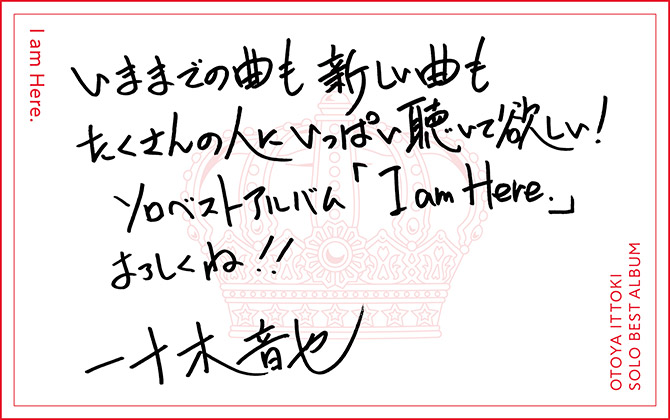 I am Here.
いままでの曲も 新しい曲も
たくさんの人にいっぱい聴いて欲しい!
ソロベストアルバム「I am Here.」
よろしくね!!
一十木音也
OTOYA ITTOKI
SOLO BEST ALBUM